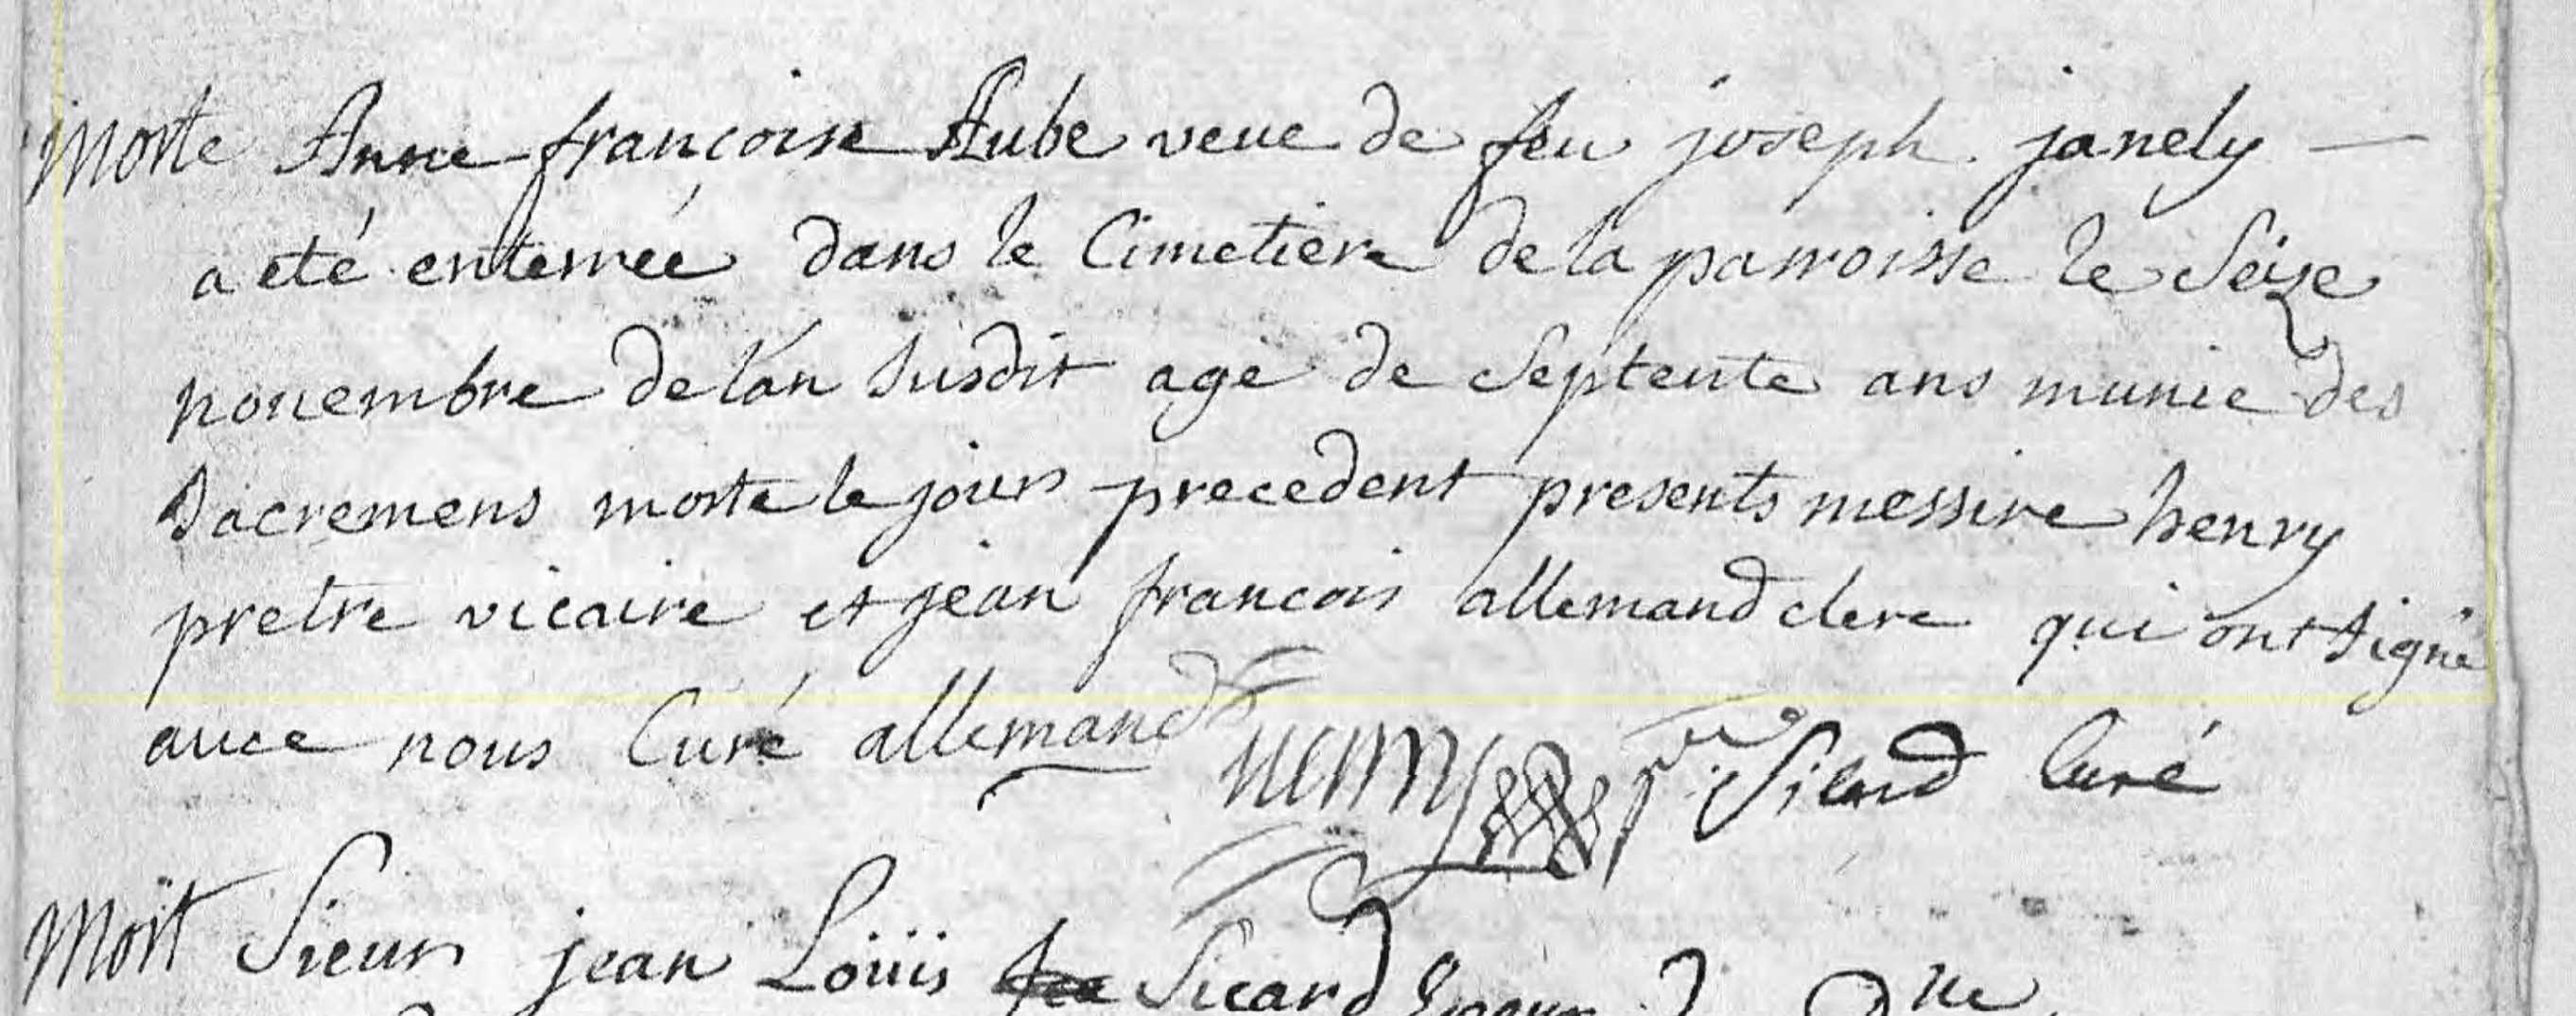 Morte Anne françoise Aube veue de feu joseph janely —
a eté enterreé dans le Cimetiere de la parroisse le Seize
novembre de l'an susdit age de Septente ans munie des
Sacremens morte le jour precedent presents messire henry
pretre vicaire et jean francois allemand clerc qui ont signé
avec nous Curé allemand henry Curé
Mort Sieur jean Loüis Sicard Epoux Dlle